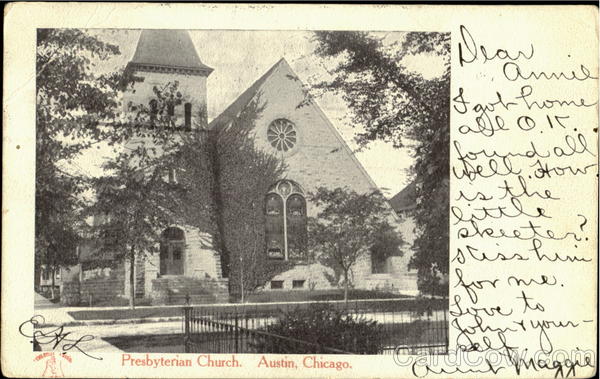 Dear
Annie
I got home
all O.K.
found all
well. How
is the
little
skeeter?
Kiss him
for me.
Love to
John & your-
self.
Aunt Maggie
Presbyterian Church. Austin, Chicago.
CardCow.com